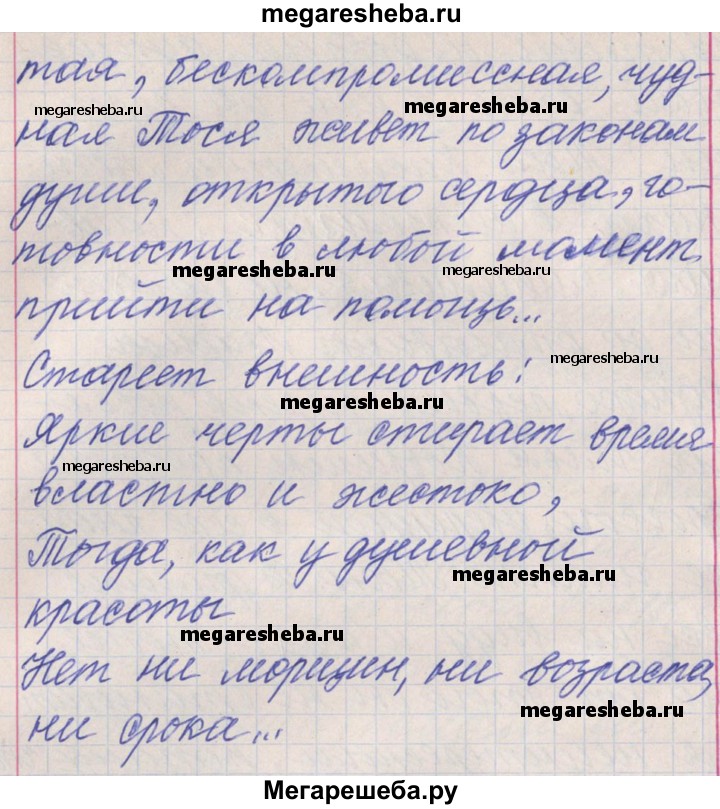 megaresheba.ru
тая, бескомпромиссная, чуд-
megaresheba.ru
megaresheba.ru
ная Тося живет по законам
души, открытого сердца, го-
товности в любой момент
megaresheba.ru
megaresheba.ru
прийти на помощь...
Стареет внешность!
megaresheba.ru
megaresheba.ru
Яркие черты стирает время
megaresheba.ru
властно и жестоко,
Тогда, как у душевной
megaresheba.ru
красоты
megaresheba.ru
Нет ни морщин, ни возраста,
megaresheba.ru
ни срока...
Мегарешеба.ру